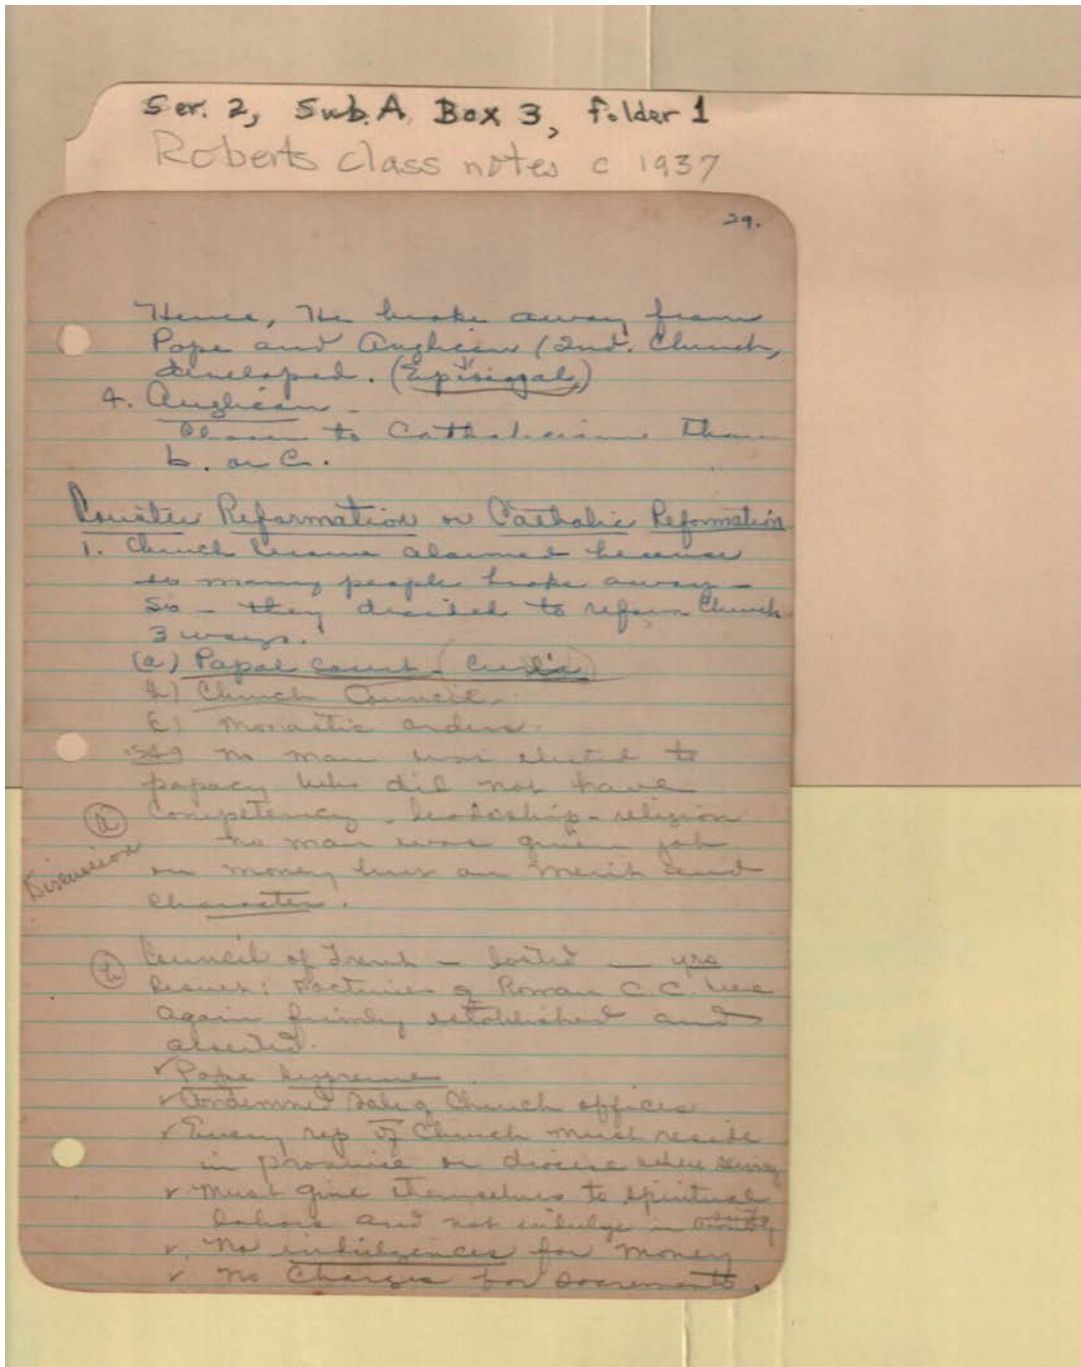 Ser. 2, Sub. A, Box 3, Folder 1
Roberts class notes c 1937
29.
Hence, He broke away from
Pope and Anglican (2nd. Church,
developed. (Episigal)
4. Anglican -
Closer to Catholicism than
b. or C.
Counter Reformation or Catholic Reformation
1. Church became alarmed because
so many people broke away -
So - they decided to reform Church
3 ways.
(a) Papal court - Curia
b) Church Council.
C) Monastic orders.
1549 No man was elected to
papacy who did not have
(a) Competency, leadership - religion
Discussion
no man was given job
on money but on merit and
character.
(b) Council of Trent - lasted — yrs
Result: Doctrines of Roman C.C. were
again firmly established and
asserted.
✓ Pope Supreme
✓ Condemned sale of Church offices
✓ Every rep of Church must reside
in province or diocese where serving
✓ Must give themselves to spiritual
labors and not indulge in
✓ No indulgences for money
✓ No Charges for Sacrements.